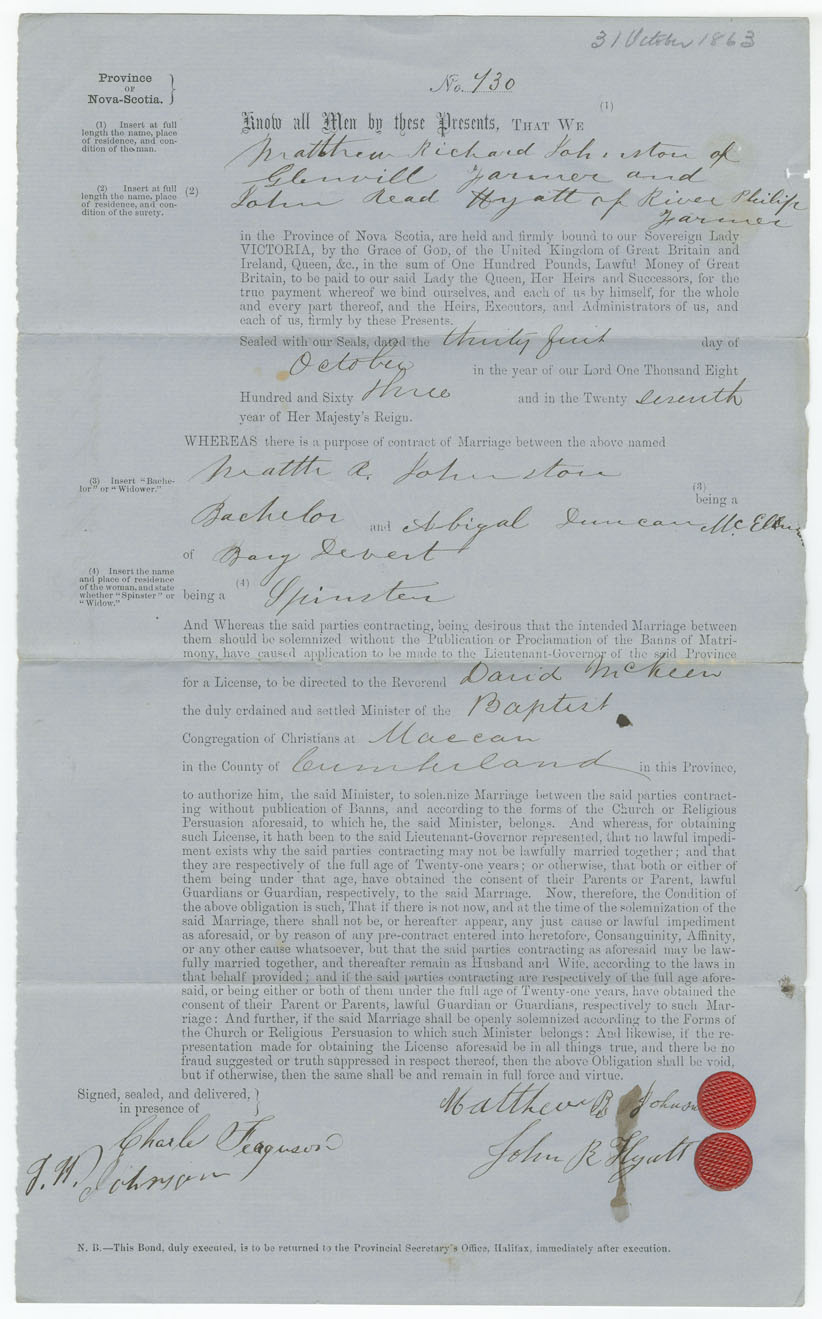 31 October 1863
Province
OF
Nova-Scotia.
No. 730
(1)
(1) Insert at full
length the name, place
of residence, and con-
dition of the man.
Know all Men by these Presents, THAT WE
Matthew Richard Johnston of
Glenvill Farmer and
(2) Insert at full
length the name, place
of residence, and con-
dition of the surety.
(2)
John Read Hyatt of River Philip
Farmer
in the Province of Nova Scotia, are held and firmly bound to our Sovereign Lady
VICTORIA, by the Grace of GOD, of the United Kingdom of Great Britain and
Ireland, Queen, &c., in the sum of One Hundred Pounds, Lawful Money of Great
Britain, to be paid to our said Lady the Queen, Her Heirs and Successors, for the
true payment whereof we bind ourselves, and each of us by himself, for the whole
and every part thereof, and the Heirs, Executors, and Administrators of us, and
each of us, firmly by these Presents.
Sealed with our Seals, dated the thirty first day of
October in the year of our Lord One Thousand Eight
Hundred and Sixty three and in the Twenty seventh
year of Her Majesty's Reign.
WHEREAS there is a purpose of contract of Marriage between the above named
Matth R. Johnston
(3) Insert "Bache-
lor" or "Widower."
(3)
being a
Bachelor and Abigal Duncan
of Bay Devert
(4) Insert the name
and place of residence
of the woman, and state
whether "Spinster" or
"Widow."
being a (4) Spinster
And Whereas the said parties contracting, being desirous that the intended Marriage between
them should be solemnized without the Publication or Proclamation of the Banns of Matri-
mony, have caused application to be made to the Lieutenant-Governor of the said Province
for a License, to be directed to the Reverend David McKeen
the duly ordained and settled Minister of the Baptist
Congregation of Christians at Maccan
in the County of Cumberland in this Province,
to authorize him, the said Minister, to solemnize Marriage between the said parties contract-
ing without publication of Banns, and according to the forms of the Church or Religious
Persuasion aforesaid, to which he, the said Minister, belongs. And whereas, for obtaining
such License, it hath been to the said Lieutenant-Governor represented, that no lawful impedi-
ment exists why the said parties contracting may not be lawfully married together; and that
they are respectively of the full age of Twenty-one years; or otherwise, that both or either of
them being under that age, have obtained the consent of their Parents or Parent, lawful
Guardians or Guardian, respectively, to the said Marriage. Now, therefore, the Condition of
the above obligation is such, That if there is not now, and at the time of the solemnization of the
said Marriage, there shall not be, or hereafter appear, any just cause or lawful impediment
as aforesaid, or by reason of any pre-contract entered into heretofore, Consanguinity, Affinity,
or any other cause whatsoever, but that the said parties contracting as aforesaid may be law-
fully married together, and thereafter remain as Husband and Wife, according to the laws in
that behalf provided; and if the said parties contracting are respectively of the full age afore-
said, or being either or both of them under the full age of Twenty-one years, have obtained the
consent of their Parent or Parents, lawful Guardian or Guardians, respectively to such Mar-
riage: And further, if the said Marriage shall be openly solemnized according to the Forms of
the Church or Religious Persuasion to which such Minister belongs: And likewise, if the re-
presentation made for obtaining the License aforesaid be in all things true, and there be no
fraud suggested or truth suppressed in respect thereof, then the above Obligation shall be void,
but if otherwise, then the same shall be and remain in full force and virtue.
Signed, sealed, and delivered,
in presence of
Matthew R Johnson
Charls Ferguson
John R Hyatt
J. W. Johnson
N. B.—This Bond, duly executed, is to be returned to the Provincial Secretary's Office, Halifax, immediately after execution.